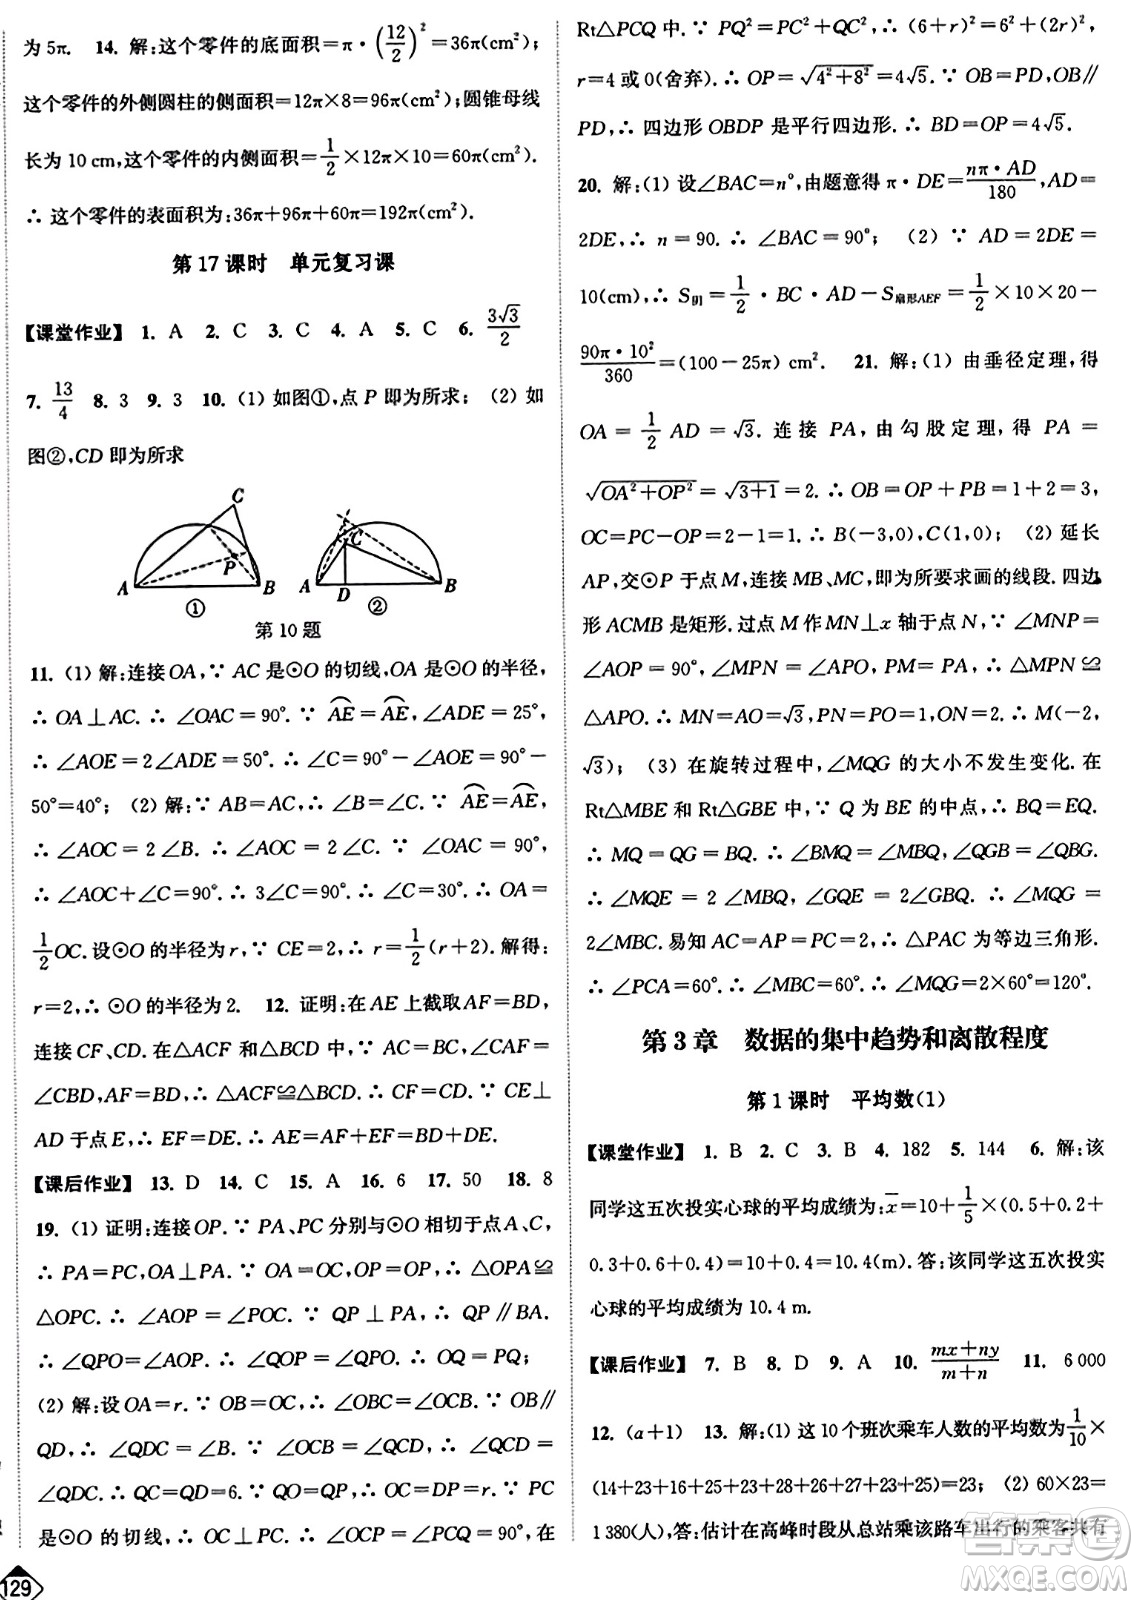 为5π. 14. 解:这个零件的底面积=π·(12/2)²=36π(cm²);
这个零件的外侧圆柱的侧面积=12π×8=96π(cm²);圆锥母线
长为10 cm,这个零件的内侧面积=1/2×12π×10=60π(cm²).
∴ 这个零件的表面积为:36π+96π+60π=192π(cm²).
第17课时 单元复习课
【课堂作业】 1. A 2. C 3. C 4. A 5. C 6. 3√3/2
7. 13/4 8. 3 9. 3 10. (1) 如图①,点P即为所求; (2) 如
图②,CD即为所求
C
P
A
B
①
C
A
D
B
②
第10题
11. (1) 解:连接OA,∵ AC是⊙O的切线,OA是⊙O的半径,
∴ OA⊥AC. ∴ ∠OAC=90°. ∵ AE⌒=AE⌒,∠ADE=25°,
∴ ∠AOE=2∠ADE=50°. ∴ ∠C=90°-∠AOE=90°-
50°=40°; (2) 解:∵ AB=AC,∴ ∠B=∠C. ∵ AE⌒=AE⌒,
∴ ∠AOC=2∠B. ∴ ∠AOC=2∠C. ∵ ∠OAC=90°,
∴ ∠AOC+∠C=90°. ∴ 3∠C=90°. ∴ ∠C=30°. ∴ OA=
1/2OC. 设⊙O的半径为r,∵ CE=2,∴ r=1/2(r+2). 解得:
r=2,∴ ⊙O的半径为2. 12. 证明:在AE上截取AF=BD,
连接CF、CD. 在△ACF和△BCD中,∵ AC=BC,∠CAF=
∠CBD,AF=BD,∴ △ACF≌△BCD. ∴ CF=CD. ∵ CE⊥
AD于点E,∴ EF=DE. ∴ AE=AF+EF=BD+DE.
【课后作业】 13. D 14. C 15. A 16. 6 17. 50 18. 8
19. (1) 证明:连接OP. ∵ PA、PC分别与⊙O相切于点A、C,
∴ PA=PC,OA⊥PA. ∵ OA=OC,OP=OP,∴ △OPA≌
△OPC. ∴ ∠AOP=∠POC. ∵ QP⊥PA,∴ QP∥BA.
∴ ∠QPO=∠AOP. ∴ ∠QOP=∠QPO. ∴ OQ=PQ;
(2) 解:设OA=r. ∵ OB=OC,∴ ∠OBC=∠OCB. ∵ OB∥
QD,∴ ∠QDC=∠OBC. ∵ ∠OCB=∠QCD,∴ ∠QCD=
∠QDC. ∴ QC=QD=6. ∵ QO=QP,∴ OC=DP=r. ∵ PC
是⊙O的切线,∴ OC⊥PC. ∴ ∠OCP=∠PCQ=90°,在
129
Rt△PCQ中. ∵ PQ²=PC²+QC²,∴ (6+r)²=6²+(2r)²,
r=4或0(舍弃). ∴ OP=√(4²+8²)=4√5. ∵ OB=PD,OB∥
PD,∴ 四边形OBDP是平行四边形. ∴ BD=OP=4√5.
20. 解:(1) 设∠BAC=n°,由题意得π·DE=nπ·AD/180,AD=
2DE,∴ n=90. ∴ ∠BAC=90°; (2) ∵ AD=2DE=
10(cm),∴ S阴=1/2·BC·AD-S扇形AEF=1/2×10×20-
90π·10²/360=(100-25π) cm². 21. 解:(1) 由垂径定理,得
OA=1/2AD=√3. 连接PA,由勾股定理,得PA=
√(OA²+OP²)=√(3+1)=2. ∴ OB=OP+PB=1+2=3,
OC=PC-OP=2-1=1. ∴ B(-3,0),C(1,0); (2) 延长
AP,交⊙P于点M,连接MB、MC,即为所要求画的线段. 四边
形ACMB是矩形. 过点M作MN⊥x轴于点N,∵ ∠MNP=
∠AOP=90°,∠MPN=∠AOP,PM=PA,∴ △MPN≌
△APO. ∴ MN=AO=√3,PN=PO=1,ON=2. ∴ M(-2,
√3); (3) 在旋转过程中,∠MQG的大小不发生变化. 在
Rt△MBE和Rt△GBE中,∵ Q为BE的中点,∴ BQ=EQ.
∴ MQ=QG=BQ. ∴ ∠BMQ=∠MBQ,∠QGB=∠QBG.
∴ ∠MQE=2∠MBQ,∠GQE=2∠GBQ. ∴ ∠MQG=
2∠MBC. 易知AC=AP=PC=2,∴ △PAC为等边三角形.
∴ ∠PCA=60°. ∴ ∠MBC=60°. ∴ ∠MQG=2×60°=120°.
第3章 数据的集中趋势和离散程度
第1课时 平均数(1)
【课堂作业】 1. B 2. C 3. B 4. 182 5. 144 6. 解:该
同学这五次投实心球的平均成绩为:x̄=10+1/5×(0.5+0.2+
0.3+0.6+0.4)=10+0.4=10.4(m). 答:该同学这五次投实
心球的平均成绩为10.4 m.
【课后作业】 7. B 8. D 9. A 10. mx+ny/m+n 11. 6 000
12. (a+1) 13. 解:(1) 这10个班次乘车人数的平均数为1/10×
(14+23+16+25+23+28+26+27+23+25)=23; (2) 60×23=
1 380(人),答:估计在高峰时段从总站乘该路车出行的乘客共有
答案圈
MXQE.COM